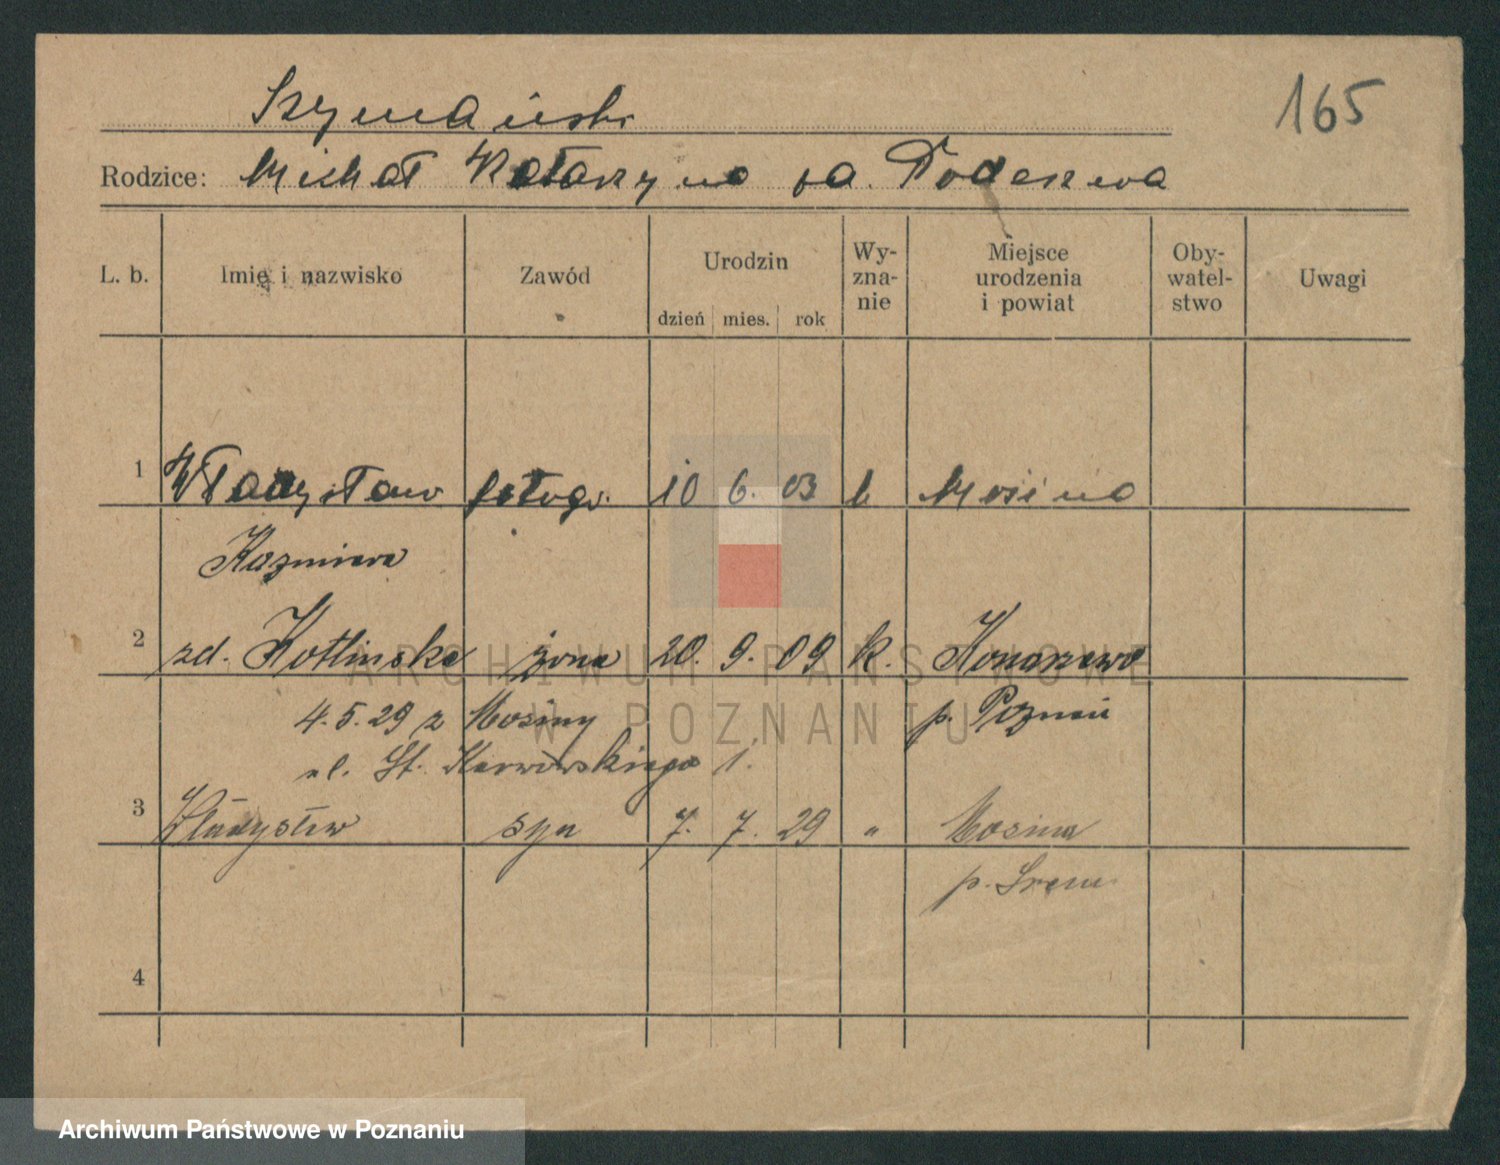 165
Szymański
Rodzice: Michał Katarzyna
L. b. Imię i nazwisko Zawód Urodzin dzień mies. rok Wy-zna-nie Miejsce urodzenia i powiat Oby-watel-stwo Uwagi
1 Władysław fotogr. 10 6. 03 k Mosina
Kazmiera
2 zd. Kotlinska żona 20. 9. 09 k. Konarzewo
4.5.29 z Mosiny p. Poznań
ul. St. Karwowskiego 1.
3 Władysław syn 7. 7. 29 " Mosina
p. Srem
4
ARCHIWUM PAŃSTWOWE
W POZNANIU
Archiwum Państwowe w Poznaniu